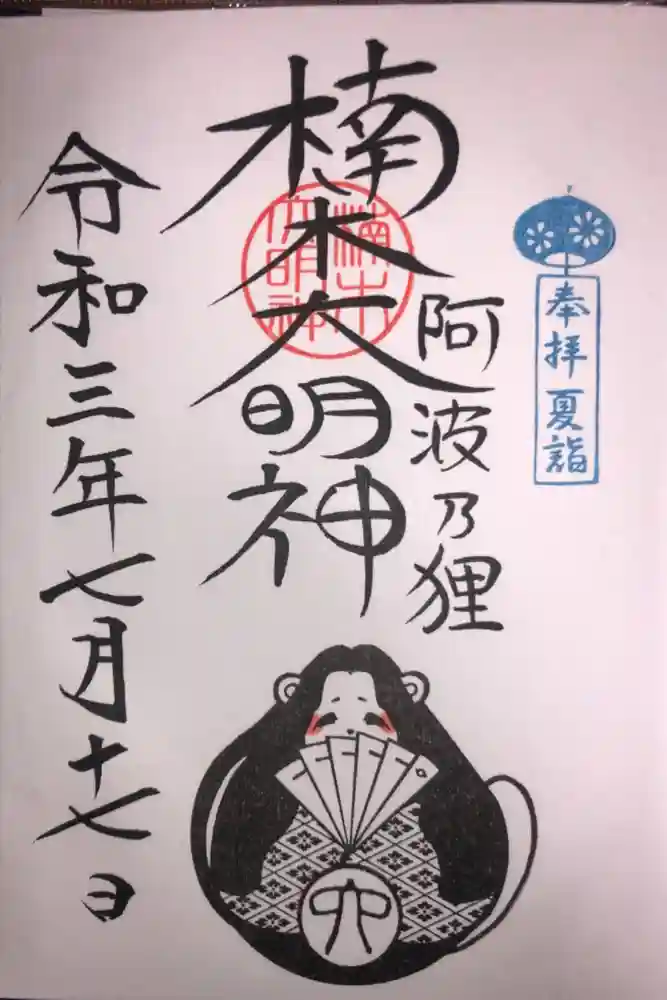 奉拝 夏詣
阿波乃狸
楠木大明神
楠木
大明神
六
令和三年七月十七日